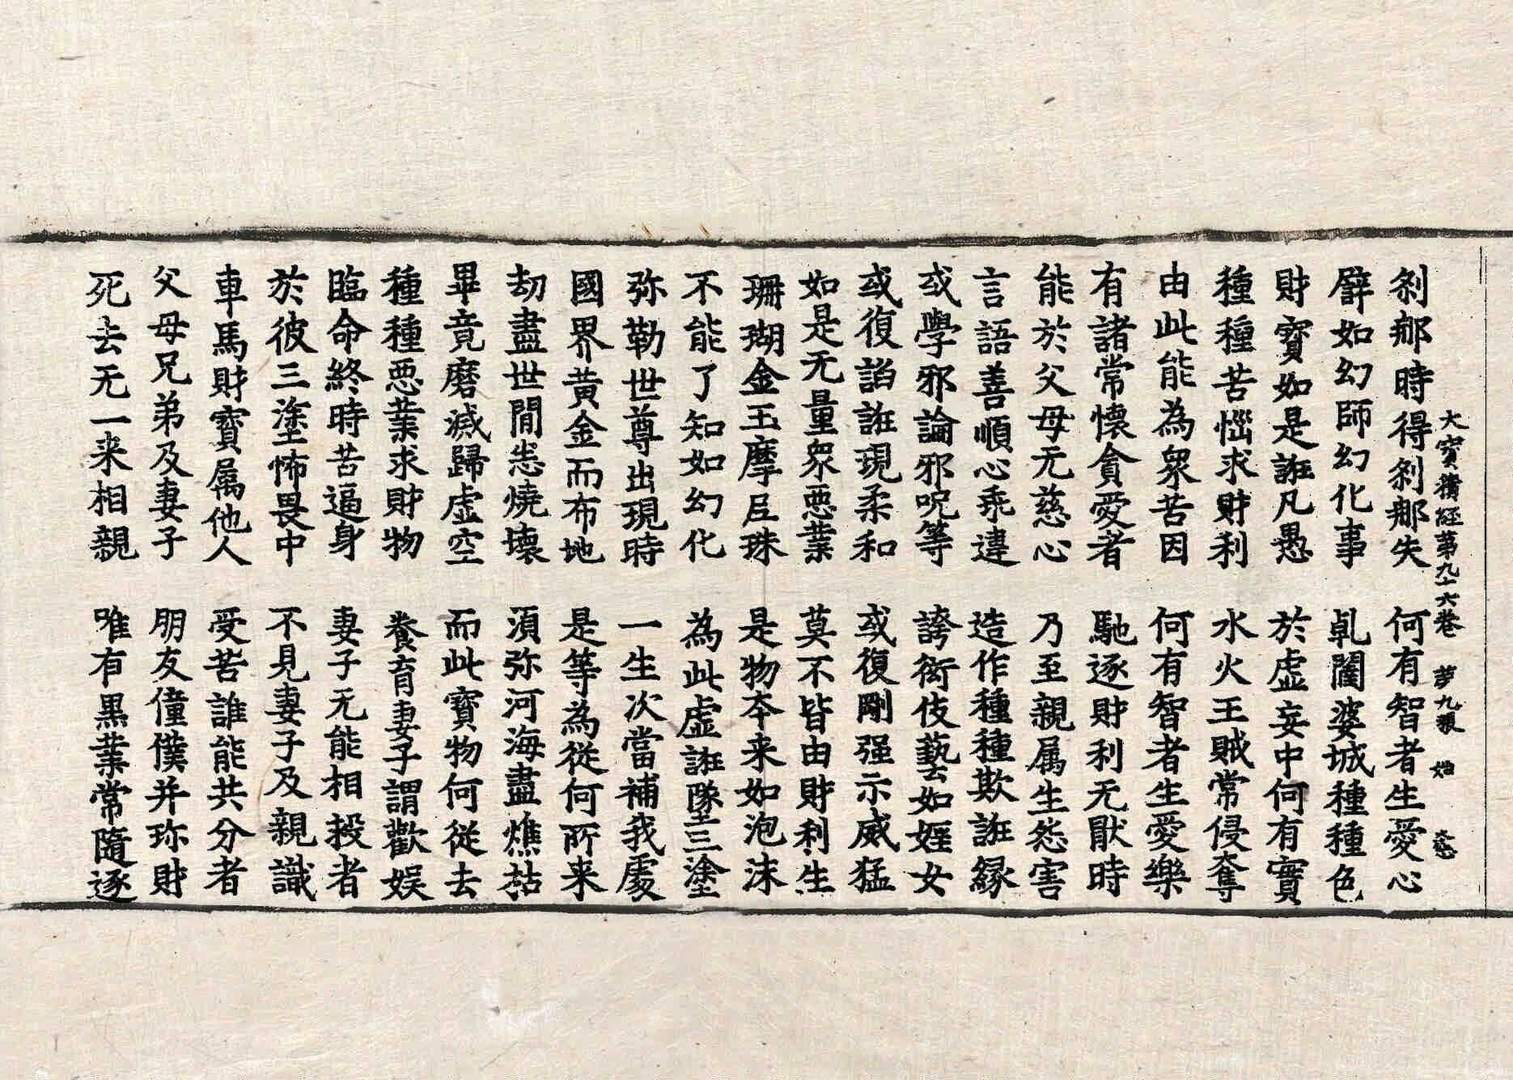 大寶積經第九十六卷 第九張 始
刹那時得刹那失 何有智者生愛心
譬如幻師幻化事 乹闥婆城種種色
財寶如是誑凡愚 於虛妄中何有實
種種苦惱求財利 水火王賊常侵奪
由此能為衆苦因 何有智者生愛樂
有諸常懷貪愛者 馳逐財利无猒時
能於父母无慈心 乃至親属生怨害
言語善順心乖違 造作種種欺誑縁
或學邪論邪呪等 誇衒伎藝如婬女
或復諂誑現柔和 或復剛强示威猛
如是无量衆惡業 莫不皆由財利生
珊瑚金玉摩尼珠 是物夲来如泡沫
不能了知如幻化 為此虛誑墜三塗
弥勒世尊出現時 一生次當補我處
國界黄金而布地 是等為從何所来
劫盡世間悉燒壞 湏弥河海盡燋枯
畢竟磨滅歸虛空 而此寶物何從去
種種惡業求財物 養育妻子謂歡娱
臨命終時苦逼身 妻子无能相救者
於彼三塗怖畏中 不見妻子及親識
車馬財寶属他人 受苦誰能共分者
父母兄弟及妻子 朋友僮僕并珎財
死去无一来相親 唯有黒業常隨逐